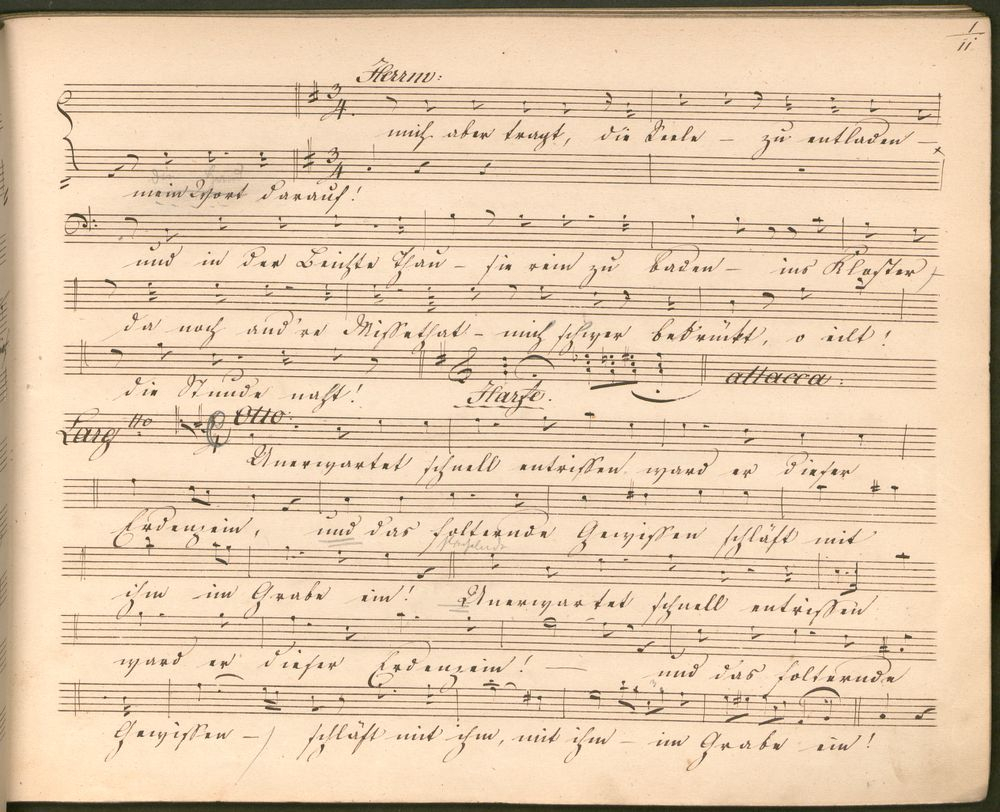 1
11
Herrm:
3/4
mich aber tragt, die Seele – zu entladen –
3/4
mein Wort darauf!
und in der Beichte Thau – sie rein zu baden – ins Kloster,
da noch and're Missethat – mich schwer bedrückt, o eilt!
die Stunde naht!
Harfe.
attacca:
Largtto
Otto:
Unerwartet schnell entrissen ward er dieser
Erdenpein, und das folternde Gewissen schläft mit
ihm im Grabe ein! Unerwartet schnell entrissen
ward er dieser Erdenpein! – und das folternde
Gewissen – schläft mit ihm, mit ihm – im Grabe ein!